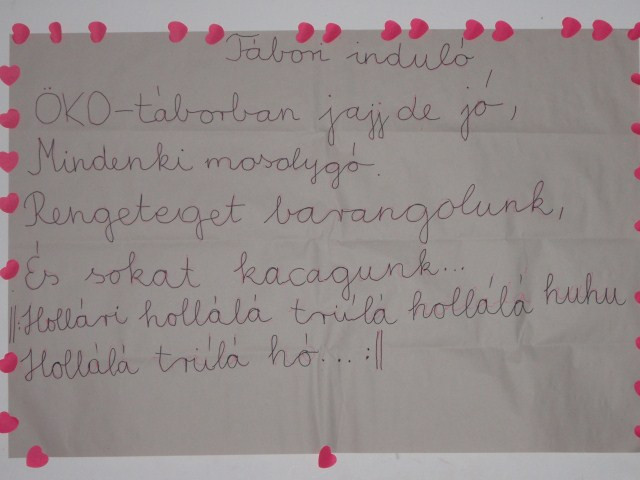 Tábori induló
ÖKO-táborban jajj de jó,
Mindenki mosolygó.
Rengeteget barangolunk,
És sokat kacagunk...
||:Hollári hollálá trúlá hollálá huhu
Hollálá trúlá hó...:||